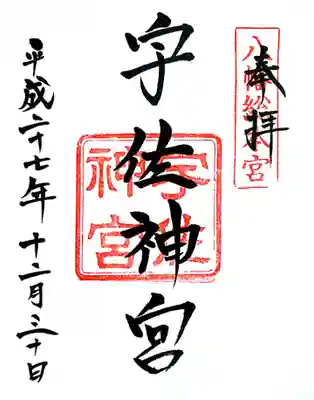 奉拝
八幡総本宮
宇佐神宮
宇佐神宮
平成二十七年十二月三十日